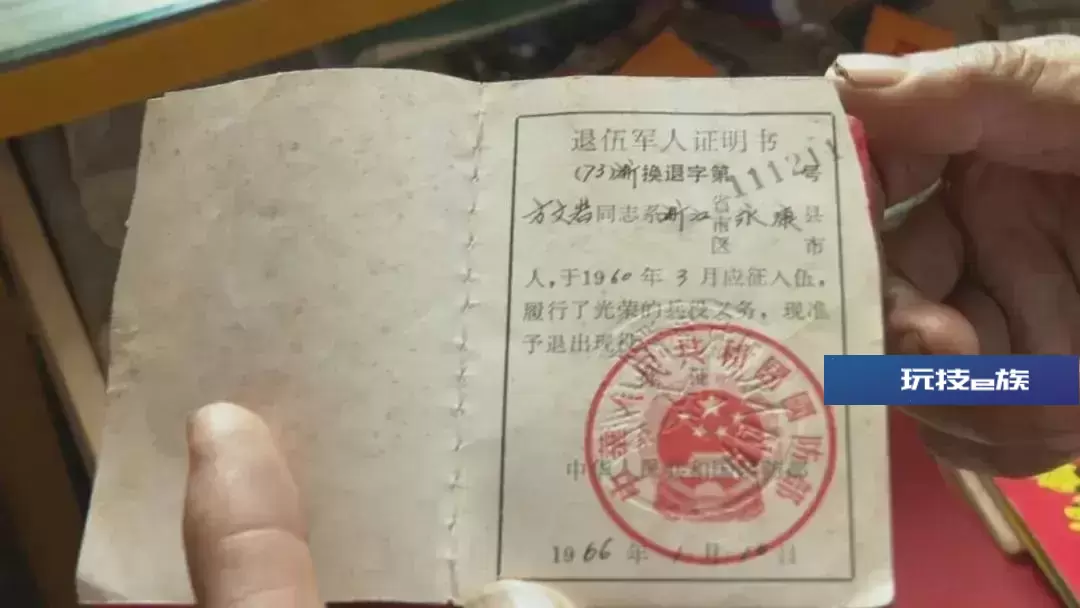 退伍军人证明书
(73)浙换退字第111211号
方文岩同志系浙江省市区永康县市
人,于1960年3月应征入伍,
履行了光荣的兵役义务,现准
予退出现役
此证
中华人民共和国国防部
中华人民共和国国防部
1966年1月10日
玩技e族